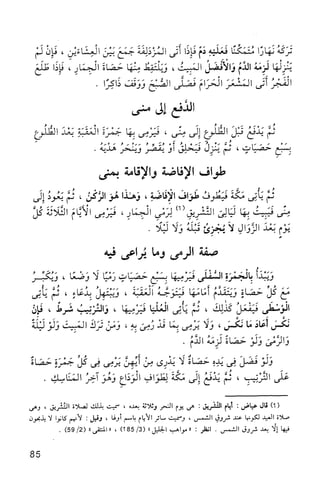 تَرَكَهُ نَهَارًا مُتَمَكِّنًا فَعَلَيْهِ دَمٌ فَإِذَا أَتَى المُزْدَلِفَةَ جَمَعَ بَيْنَ الْعِشَاءَيْنِ ، فَإِنْ لَمْ
يَنْزِلْهَا لَزِمَهُ الدَّمُ وَالأَفْضَلُ المَبِيتُ ، وَيَلْتَقِطُ مِنْهَا حَصَاةَ الْجِمَارِ ، فَإِذَا طَلَعَ
الْفَجْرُ أَتَى المَشْعَرَ الْحَرَامَ فَصَلَّى الصُّبْحَ وَوَقَفَ ذَاكِرًا .
الدَّفع إلى منى
ثُمَّ يَدْفَعُ قَبْلَ الطُّلُوعِ إِلَى مِنًى ، فَيَرْمِى بِهَا جَمْرَةَ الْعَقَبَةِ بَعْدَ الطُّلُوعِ
بِسَبْعِ حَصَيَاتٍ ، ثُمَّ يَنْزِلُ فَيَحْلِقُ أَوْ يُقَصِّرُ وَيَنْحَرُ هَدْيَهُ .
طواف الإفاضة والإقامة بمنى
ثُمَّ يَأْتِى مَكَّةَ فَيَطُوفُ طَوَافَ الإِفَاضَةِ ، وَهَذَا هُوَ الرُّكْنُ ، ثُمَّ يَعُودُ إِلَى
مِنًى فَيَبِيتُ بِهَا لَيَالِىَ التَّشْرِيقِ (١) لِرَمْىِ الْجِمَارِ ، فَيَرْمِى الأَيَّامَ الثَّلاَثَةَ كُلَّ
يَوْمٍ بَعْدَ الزَّوَالِ لاَ يُجْزِئُ قَبْلَهُ وَلاَ لَيْلاً .
صفة الرمى وما يُراعى فيه
وَيَبْدَأُ بِالْجَمْرَةِ السُّفْلَى فَيَرْمِيهَا بِسَبْعِ حَصَيَاتٍ رَمْيًا لاَ وَضْعًا ، وَيُكَبِّرُ
مَعَ كُلِّ حَصَاةٍ وَيَتَقَدَّمُ أَمَامَهَا فَيَتَوَجَّهُ الْعَقَبَةَ ، وَيَبْتَهِلُ بِدُعَاءٍ ، ثُمَّ يَأْتِى
الْوُسْطَى فَيَفْعَلُ كَذَلِكَ ، ثُمَّ يَأْتِى الْعُلْيَا فَيَرْمِيهَا ، وَالتَّرْتِيبُ شَرْطٌ ، فَإِنْ
نَكَسَ أَعَادَ مَا نَكَسَ ، وَلاَ يَرْمِى بِمَا قَدْ رُمِىَ بِهِ ، وَمَنْ تَرَكَ المَبِيتَ وَلَوْ لَيْلَةً
وَالرَّمْىَ وَلَوْ حَصَاةً لَزِمَهُ الدَّمُ .
وَلَوْ فَضَلَ فِى يَدِهِ حَصَاةٌ لاَ يَدْرِى مِنْ أَيِّهِنَّ يَرْمِى فِى كُلِّ جَمْرَةٍ حَصَاةً
عَلَى التَّرْتِيبِ ، ثُمَّ يَدْفَعُ إِلَى مَكَّةَ لِطَوَافِ الْوَدَاعِ وَهُوَ آخِرُ المَنَاسِكِ .
(١) قال عياض : أيام التَّشريق : هى يوم النحر وثلاثة بعده ، سميت بذلك لصلاة التَّشريق ، وهى
صلاة العيد لكونها عند شروق الشمس ، وسميت سائر الأيام باسم أولها ، وقيل : لأنهم كانوا لا يذبحون
فيها إلاَّ بعد شروق الشمس . انظر : «مواهب الجليل» (3/ 185) ، «المنتقى» (2/ 59) .
85